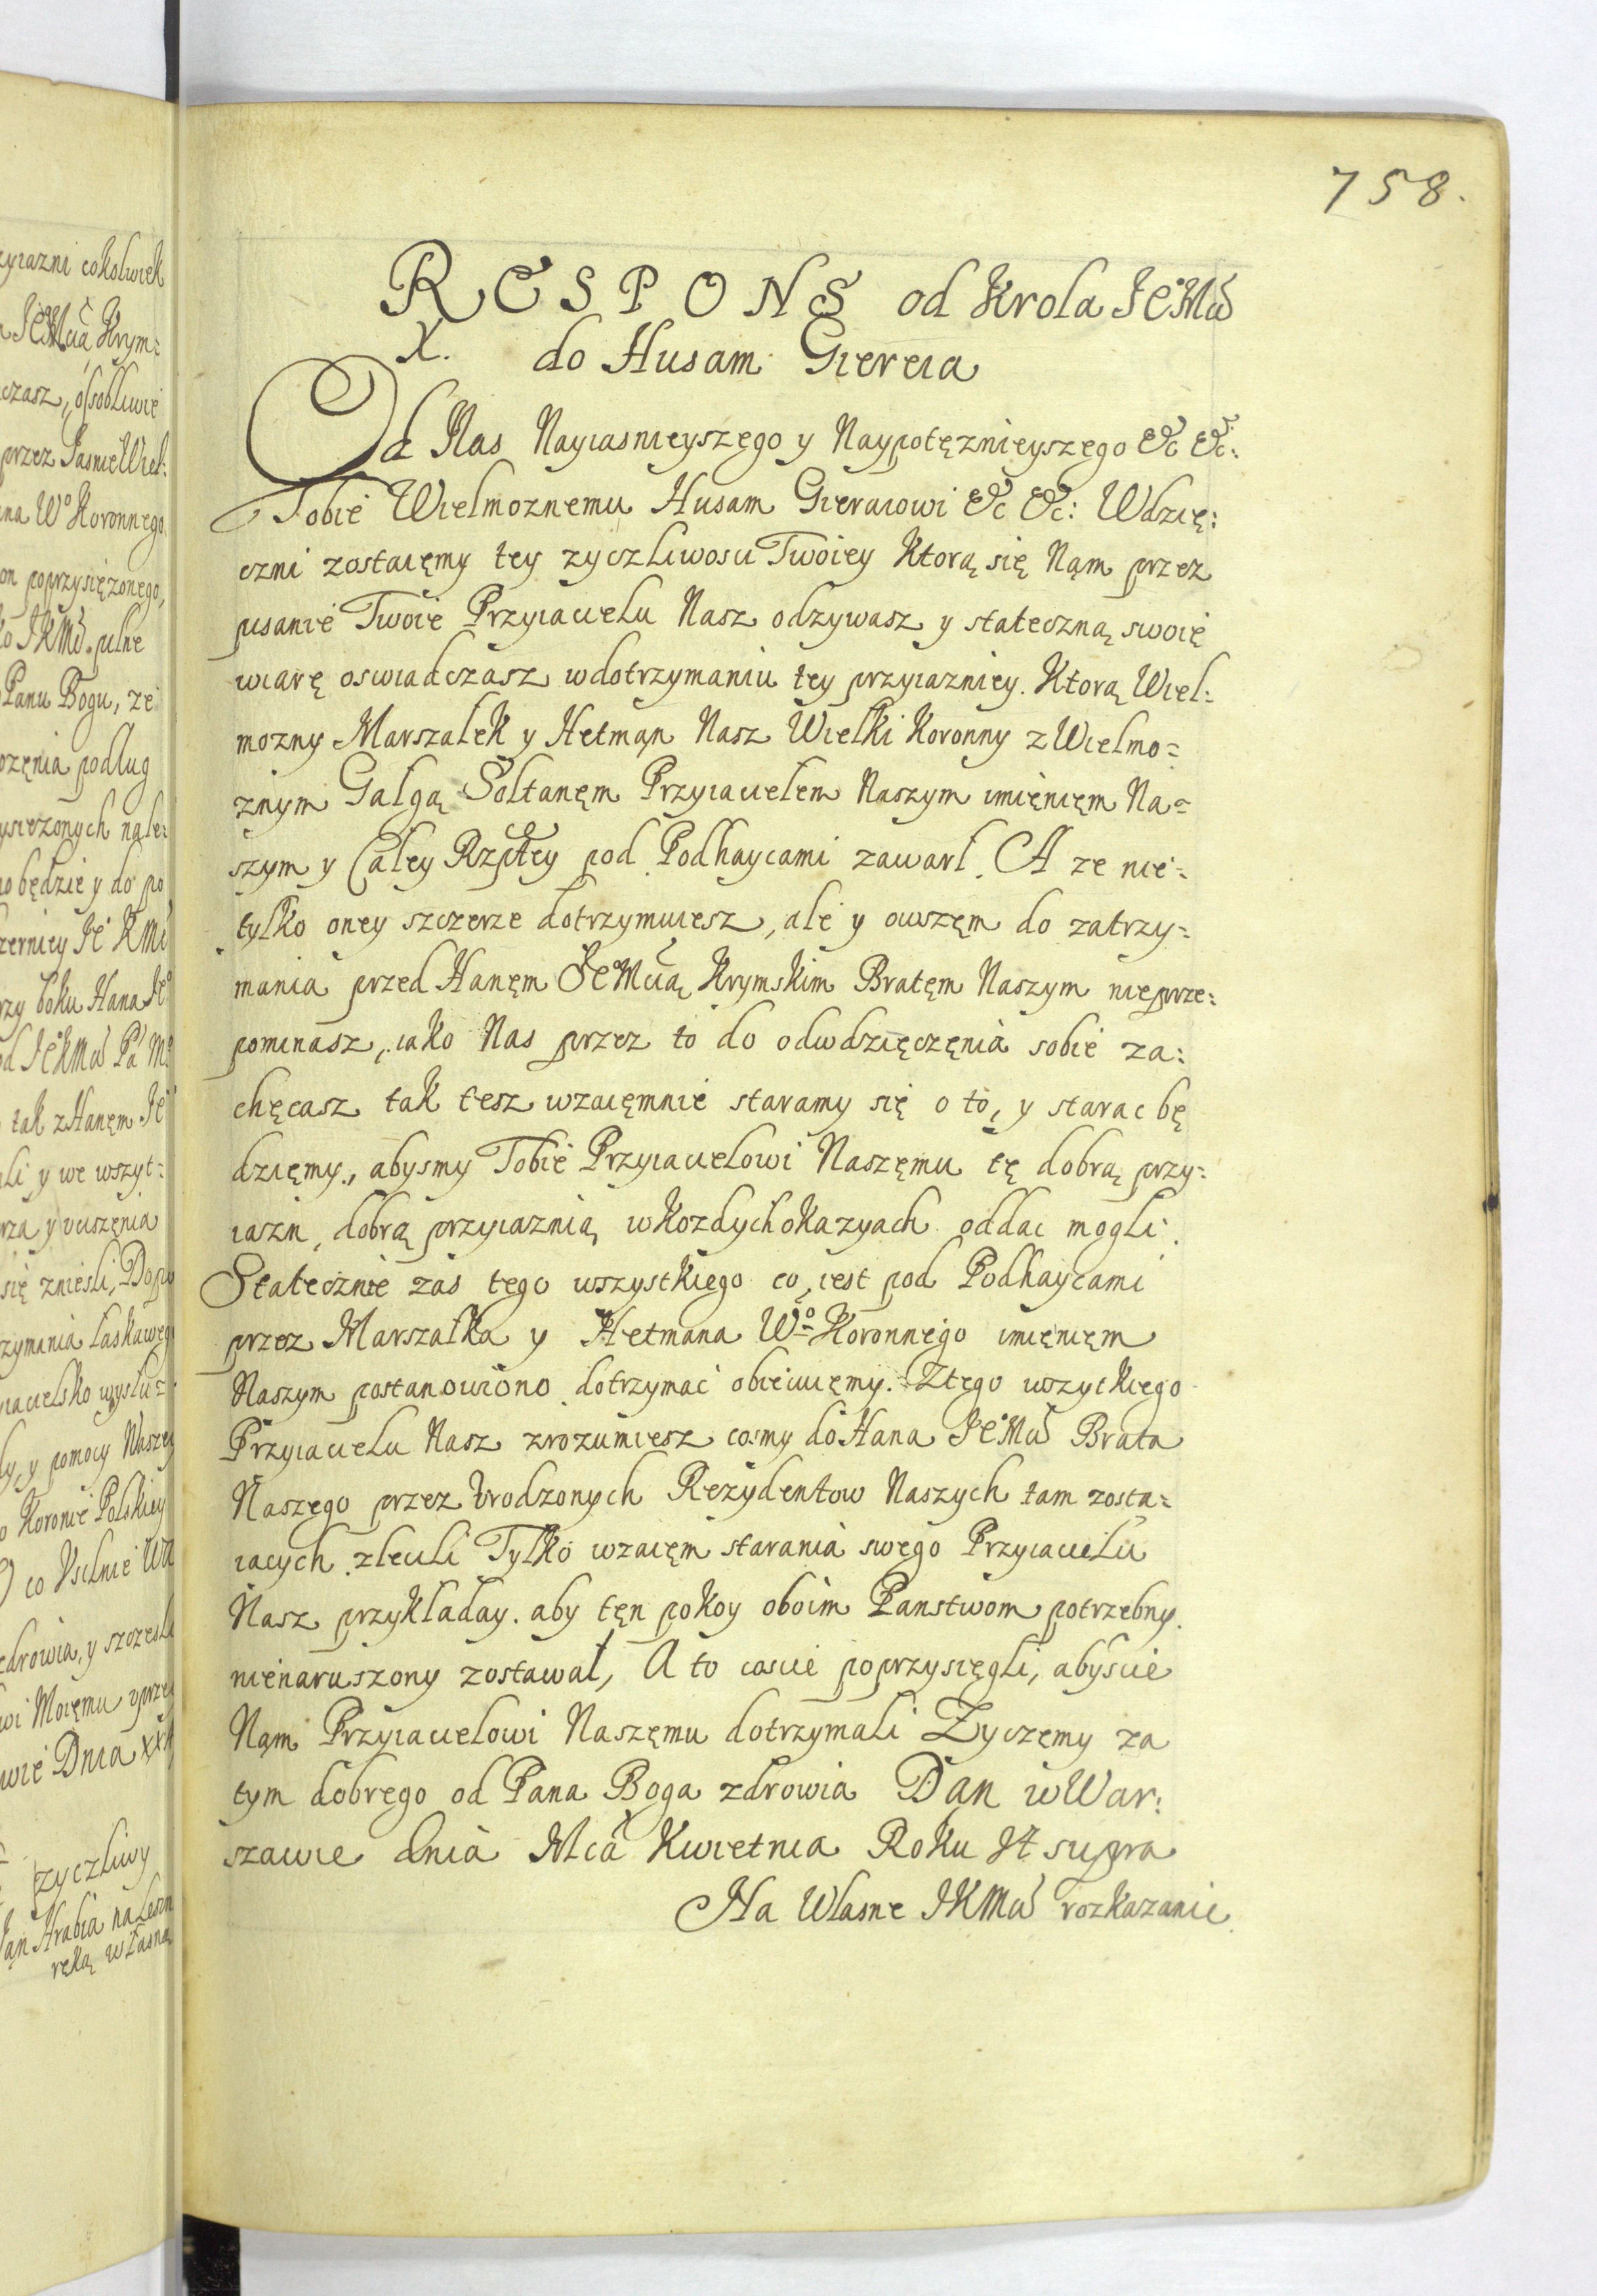 758.
RESPONS od Krola JeMci
X. do Husam Giereia
Od Nas Nayiasnieyszego y Naypotęznieyszego &c &c:
Tobie Wielmoznemu Husam Gieraiowi &c &c: Wdzię:
czni zostaięmy tey zyczliwosci Twoiey Ktorą się Nąm przez
pisanie Twoie Przyiacielu Nasz odzywasz y stateczną swoię
wiarę oswiadczasz wdotrzymaniu tey przyiazniey. Ktorą Wiel:
mozny Marszalek y Hetmąn Nasz Wielki Koronny z Wielmo=
znym Galgą Soltanęm Przyiacielem Naszym imięnięm Na=
szym y Caley Rzptey pod Podhaycami zawarl. A ze nie=
tylko oney szczerze dotrzymuiesz, ale y owszęm do zatrzy=
mania przed Hanęm JeMcią Krymskim Bratęm Naszym nieprze:
pominasz, iako Nas przez to do odwdzięczęnia sobie za:
chęcasz tak tesz wzaięmnie staramy się o to, y starac bę
dzięmy, abysmy Tobie Przyiacielowi Naszęmu tę dobrą przy:
iazn, dobrą przyiaznią, wkozdych okazyach oddac mogli.
Statecznie zas tego wszystkiego co iest pod Podhaycami
przez Marszalka y Hetmana Wo Koronnego imięnięm
Naszym postanowiono dotrzymac obiecuięmy. Ztego wszytkiego
Przyiacielu Nasz zrozumiesz cosmy do Hana JeMci Brata
Naszego przez Vrodzonych Rezydentow Naszych tam zosta=
iacych zlecili Tylko wzaięm starania swego Przyiacielu
Nasz przykladay. aby tęn pokoy oboim Panstwom potrzebny.
nienaruszony zostawał, A to coscie poprzysięgli, abyscie
Nąm Przyiacielowi Naszęmu dotrzymali Zyczemy za
tym dobrego od Pana Boga zdrowia Dąn w War:
szawie dnia Mca Kwietnia Roku Vt supra
Na Wlasne JKMci rozkazanie